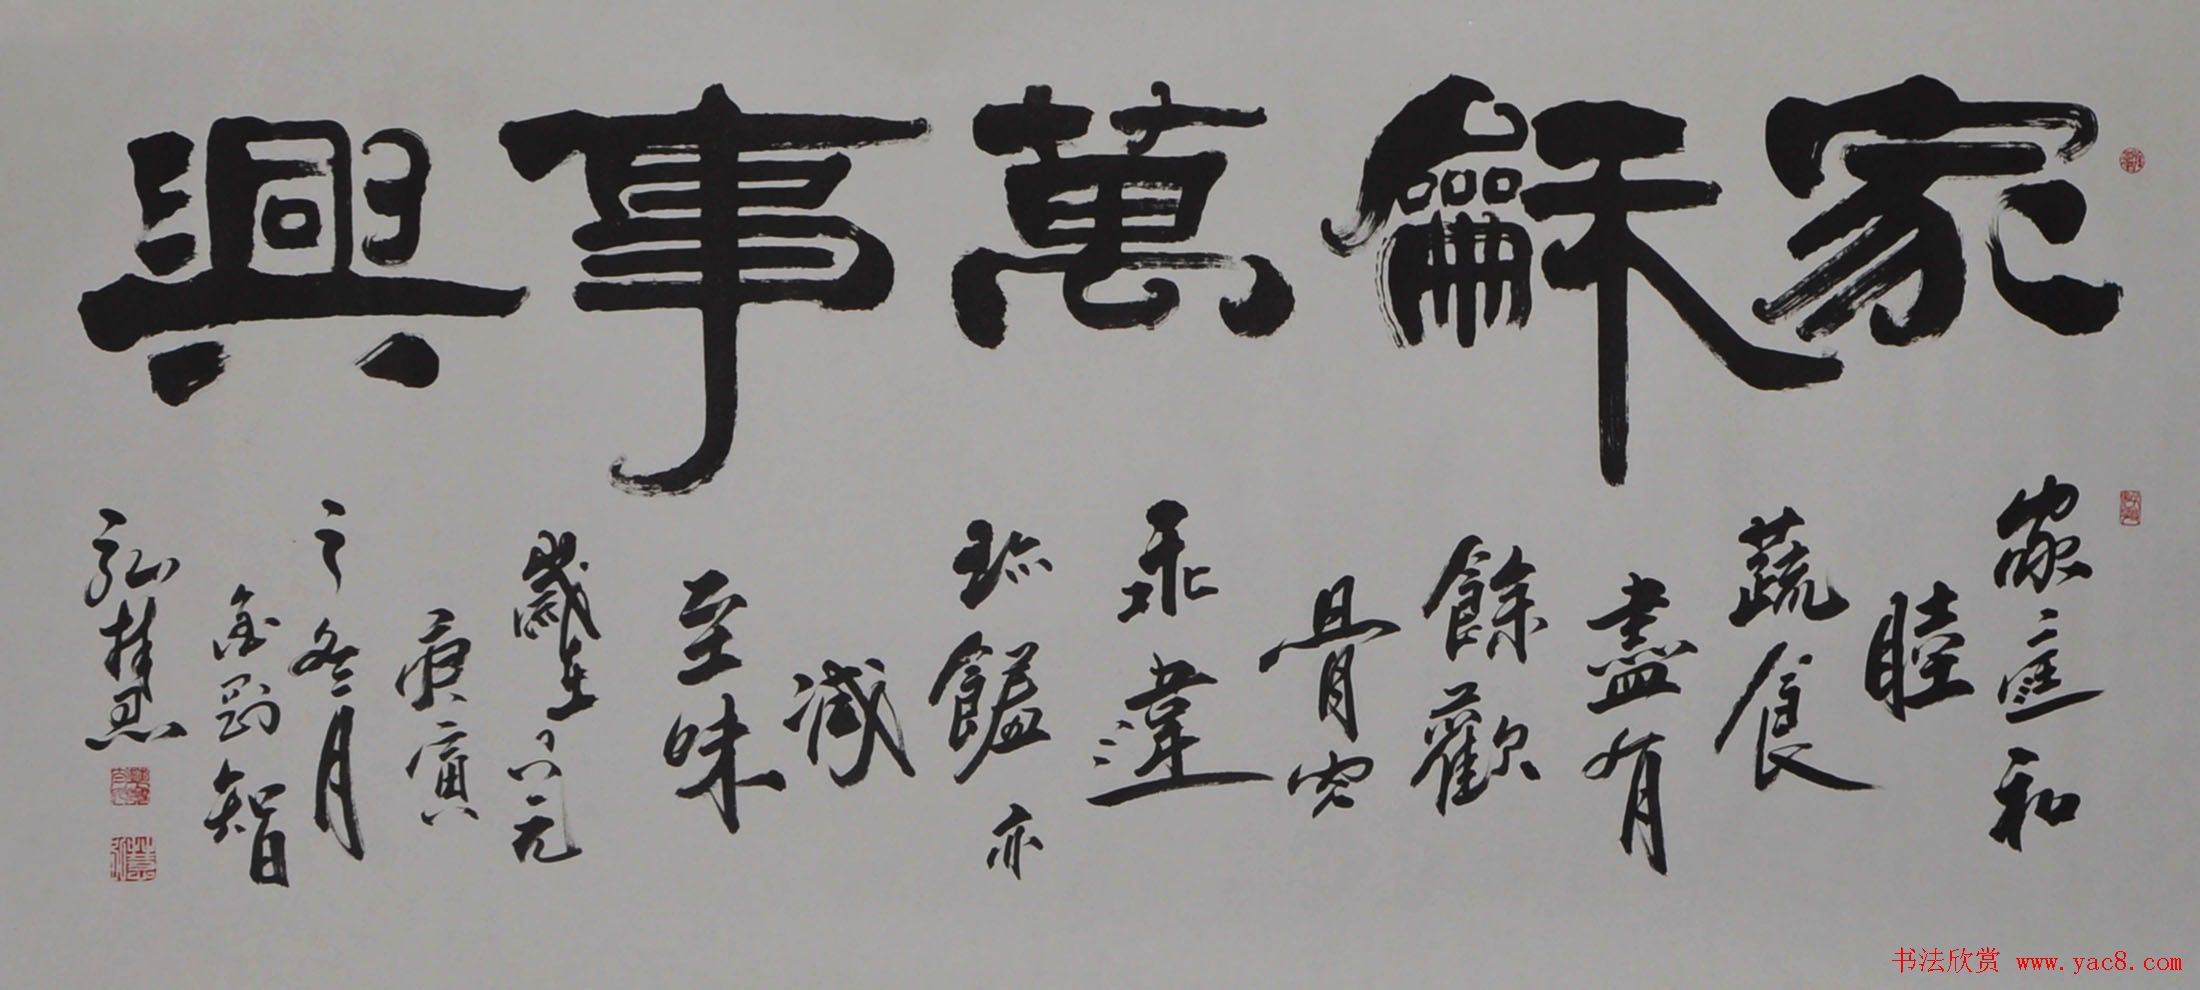 家龢萬事興
家庭和
睦
蔬食
盡有
餘歡
骨肉
乖違
珍饈亦
減
至味
歲在公元
庚寅
之冬月
金剛智
弘桂忍
书法欣赏 www.yac8.com